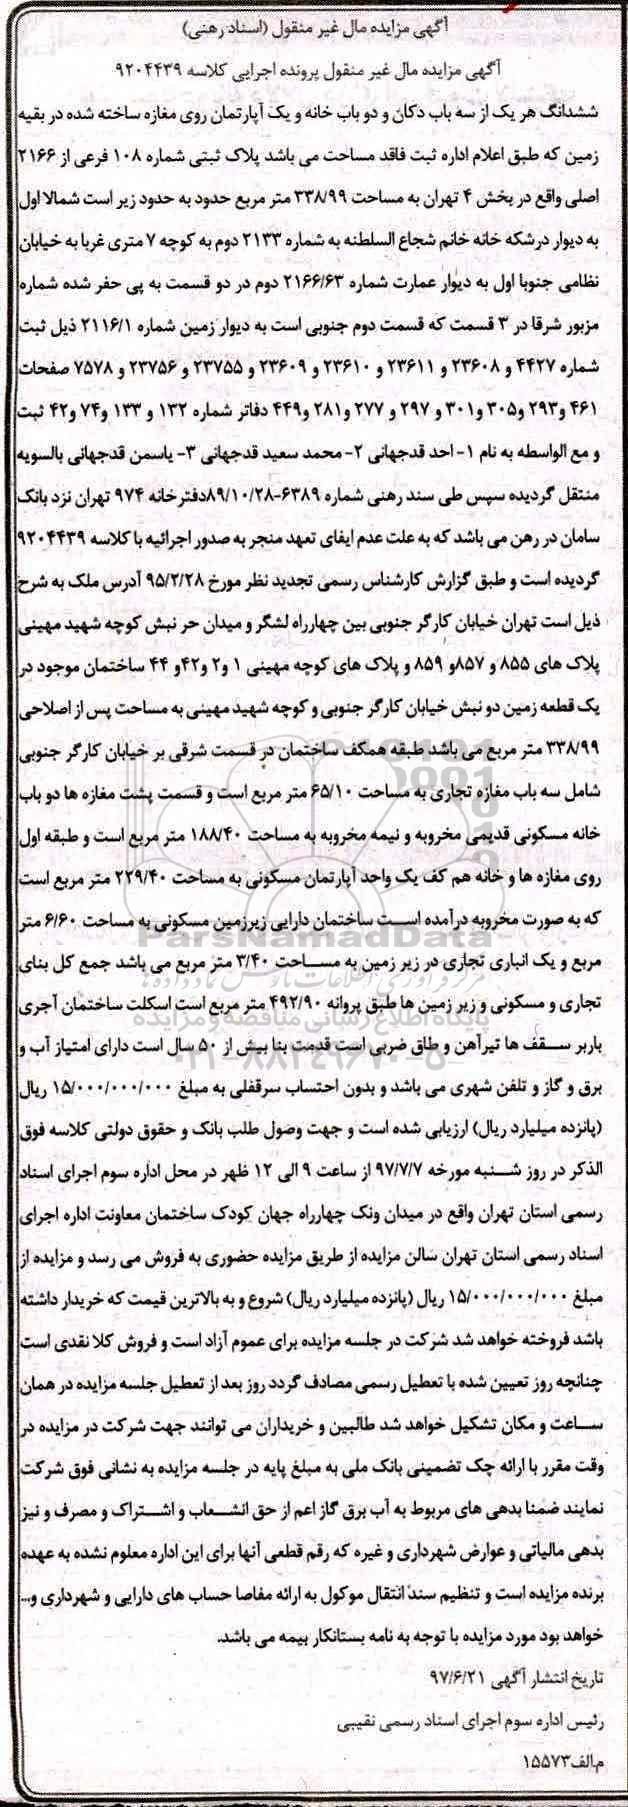 آگهی مزایده مال غیر منقول (اسناد رهنی)
آگهی مزایده مال غیر منقول پرونده اجرایی کلاسه ۹۲۰۴۴۳۹
ششدانگ هر یک از سه باب دکان و دو باب خانه و یک آپارتمان روی مغازه ساخته شده در بقیه
زمین که طبق اعلام اداره ثبت فاقد مساحت می باشد پلاک ثبتی شماره ۱۰۸ فرعی از ۲۱۶۶
اصلی واقع در بخش ۴ تهران به مساحت ۳۳۸/۹۹ متر مربع حدود به حدود زیر است شمالا اول
به دیوار درشکه خانه خانم شجاع السلطنه به شماره ۲۱۳۳ دوم به کوچه ۷ متری غربا به خیابان
نظامی جنوبا اول به دیوار عمارت شماره ۲۱۶۶/۶۳ دوم در دو قسمت به پی حفر شده شماره
مزبور شرقا در ۳ قسمت که قسمت دوم جنوبی است به دیوار زمین شماره ۲۱۱۶/۱ ذیل ثبت
شماره ۴۴۲۷ و ۲۳۶۰۸ و ۲۳۶۱۱ و ۲۳۶۱۰ و ۲۳۶۰۹ و ۲۳۷۵۵ و ۲۳۷۵۶ و ۷۵۷۸ صفحات
۴۶۱ و۲۹۳ و۳۰۵ و۳۰۱ و ۲۹۷ و ۲۷۷ و۲۸۱ و۴۴۹ دفاتر شماره ۱۳۲ و ۱۳۳ و۷۴ و۴۲ ثبت
و مع الواسطه به نام ۱- احد قدجهانی ۲- محمد سعید قدجهانی ۳- یاسمن قدجهانی بالسویه
منتقل گردیده سپس طی سند رهنی شماره ۶۳۸۹-۸۹/۱۰/۲۸دفترخانه ۹۷۴ تهران نزد بانک
سامان در رهن می باشد که به علت عدم ایفای تعهد منجر به صدور اجرائیه با کلاسه ۹۲۰۴۴۳۹
گردیده است و طبق گزارش کارشناس رسمی تجدید نظر مورخ ۹۵/۲/۲۸ آدرس ملک به شرح
ذیل است تهران خیابان کارگر جنوبی بین چهارراه لشگر و میدان حر نبش کوچه شهید مهینی
پلاک های ۸۵۵ و ۸۵۷و ۸۵۹ و پلاک های کوچه مهینی ۱ و۲ و۴۲و ۴۴ ساختمان موجود در
یک قطعه زمین دو نبش خیابان کارگر جنوبی و کوچه شهید مهینی به مساحت پس از اصلاحی
۳۳۸/۹۹ متر مربع می باشد طبقه همکف ساختمان در قسمت شرقی بر خیابان کارگر جنوبی
شامل سه باب مغازه تجاری به مساحت ۶۵/۱۰ متر مربع است و قسمت پشت مغازه ها دو باب
خانه مسکونی قدیمی مخروبه و نیمه مخروبه به مساحت ۱۸۸/۴۰ متر مربع است و طبقه اول
روی مغازه ها و خانه هم کف یک واحد آپارتمان مسکونی به مساحت ۲۲۹/۴۰ متر مربع است
که به صورت مخروبه درآمده است ساختمان دارایی زیرزمین مسکونی به مساحت ۶/۶۰ متر
مربع و یک انباری تجاری در زیر زمین به مساحت ۳/۴۰ متر مربع می باشد جمع کل بنای
تجاری و مسکونی و زیر زمین ها طبق پروانه ۴۹۲/۹۰ متر مربع است اسکلت ساختمان آجری
باربر سقف ها تیرآهن و طاق ضربی است قدمت بنا بیش از ۵۰ سال است دارای امتیاز آب و
برق و گاز و تلفن شهری می باشد و بدون احتساب سرقفلی به مبلغ ۱۵/۰۰۰/۰۰۰/۰۰۰ ریال
(پانزده میلیارد ریال) ارزیابی شده است و جهت وصول طلب بانک و حقوق دولتی کلاسه فوق
الذکر در روز شنبه مورخه ۹۷/۷/۷ از ساعت ۹ الی ۱۲ ظهر در محل اداره سوم اجرای اسناد
رسمی استان تهران واقع در میدان ونک چهارراه جهان کودک ساختمان معاونت اداره اجرای
اسناد رسمی استان تهران سالن مزایده از طریق مزایده حضوری به فروش می رسد و مزایده از
مبلغ ۱۵/۰۰۰/۰۰۰/۰۰۰ ریال (پانزده میلیارد ریال) شروع و به بالاترین قیمت که خریدار داشته
باشد فروخته خواهد شد شرکت در جلسه مزایده برای عموم آزاد است و فروش کلا نقدی است
چنانچه روز تعیین شده با تعطیل رسمی مصادف گردد روز بعد از تعطیل جلسه مزایده در همان
ساعت و مکان تشکیل خواهد شد طالبین و خریداران می توانند جهت شرکت در مزایده در
وقت مقرر با ارائه چک تضمینی بانک ملی به مبلغ پایه در جلسه مزایده به نشانی فوق شرکت
نمایند ضمنا بدهی های مربوط به آب برق گاز اعم از حق انشعاب و اشتراک و مصرف و نیز
بدهی مالیاتی و عوارض شهرداری و غیره که رقم قطعی آنها برای این اداره معلوم نشده به عهده
برنده مزایده است و تنظیم سند انتقال موکول به ارائه مفاصا حساب های دارایی و شهرداری و...
خواهد بود مورد مزایده با توجه به نامه بستانکار بیمه می باشد.
تاریخ انتشار آگهی ۹۷/۶/۲۱
رئیس اداره سوم اجرای اسناد رسمی نقیبی
م.الف۱۵۵۷۳
ParsNamadData
پایگاه اطلاع رسانی مناقصه و مزایده
۰۲۱-۸۸۳۴۹۶۷۰-۵